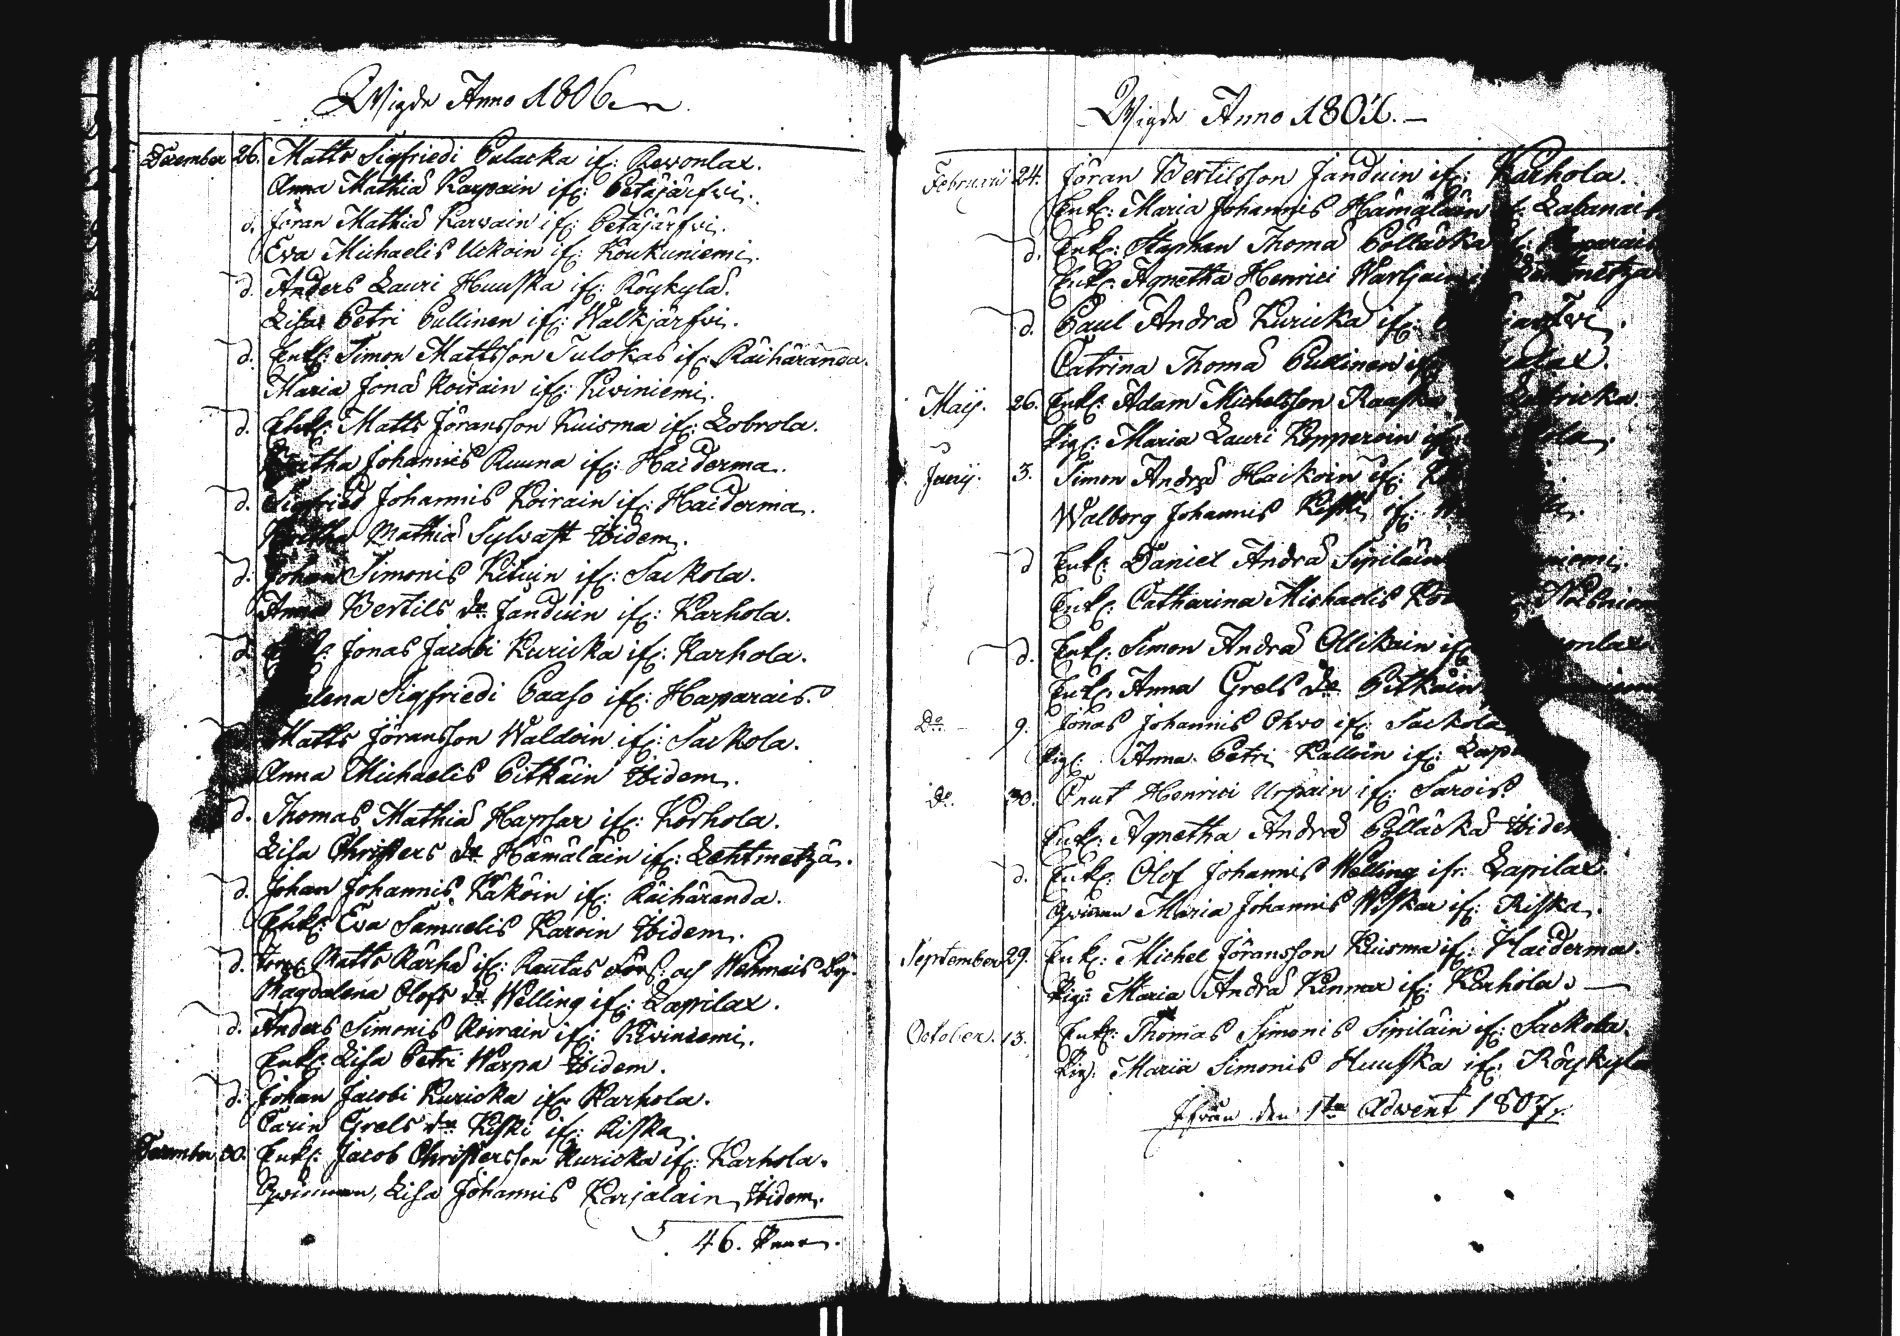 Wigde Anno 1806.
December 26. Matts Sigfriedi Pulacka if: Rewonlax.
Anna Mathiæ Karpain if: Petäjärfwi.
d. Jöran Mathiæ Karwain if: Petäjärfwi.
Ewa Michaelis Uckoin if: Koukuniemi.
d. Anders Lauri Huuska if: Röykylä.
Lisa Petri Pullinen if: Walkjärfwi.
d. Enkl: Simon Mattsson Tulokas if: Räihäranda.
Maria Jonæ Koirain if: Kiwiniemi.
d. Enkl: Matts Jöransson Kuisma if: Lobrola.
Johannis Ruuna if: Haiderma.
d. Sigfried Johannis Koirain if: Haiderma.
Mathiæ Sylwast Ibidem.
d. Johan Simonis Kituin if: Sackola.
Anna Bertils dr Janduin if: Karhola.
d. Jonas Jacobi Kuricka if: Karhola.
Sigfriedi Paaso if: Haparais.
Matts Jöransson Waldoin if: Sackola.
Anna Michaelis Pitkäin Ibidem.
d. Thomas Mathiæ Hapsar if: Korhola.
Lisa Christers dr Hämäläin if: Lehtmetzä.
d. Johan Johannis Käköin if: Räihäranda.
Enkl: Ewa Samuelis Karoin Ibidem.
d. Matts Kärhä if: Rautus Förs: och Wehmais By.
Magdalena Olofs dr Welling if: Lapilax.
d. Anders Simonis Koirain if: Kiwiniemi.
Enkl: Lisa Petri Warpa Ibidem.
d. Johan Jacobi Kuricka if: Karhola.
Carin Grels dr Kiski if: Riska.
December 30. Enkl: Jacob Christersson Kuricka if: Karhola.
Qwinnan, Lisa Johannis Karjalain, Ibidem.
46. Paar.
Wigde Anno 1807.
Februarii 24. Jöran Bertilsson Janduin if: Karhola.
Enkl: Maria Johannis Hämäläin if:
d. Enkl: Staphan Thomæ Pölläckä if:
Enkl: Agnetha Henrici
d. Paul Andræ Kuricka if:
Catrina Thomæ Pullinen if:
Maij. 26. Enkl: Adam Michelsson Raaska
Pig: Maria Lauri Kopperoin if:
Junij. 3. Simon Andræ Hackoin if:
Walborg Johannis Kiski if:
d. Enkl: Daniel Andræ Sipiläin
Enkl: Catharina Michaelis
d. Enkl: Simon Andræ Ollikain if:
Enkl: Anna Grels dr Pitkäin
Do 9. Jonas Johannis Ohwo if: Sackola
Pig: Anna Petri Kalloin if:
Do. 30. Cnut Henrici Urpain if: Sarois
Enkl: Agnetha Andræ Pölläckä Ibidem
d. Enkl: Olof Johannis Welling if: Lapilax.
Qwinnan Maria Johannis Wiskar if: Riska.
September 29. Enkl: Michel Jöransson Kuisma if: Haiderma.
Pig: Maria Andræ Kinnar if: Karhola.
October. 13. Enkl: Thomas Simonis Sipiläin if: Sackola.
Pig: Maria Simonis Huuska if: Röykylä
Ifrån den 1sta Adwent 1807.